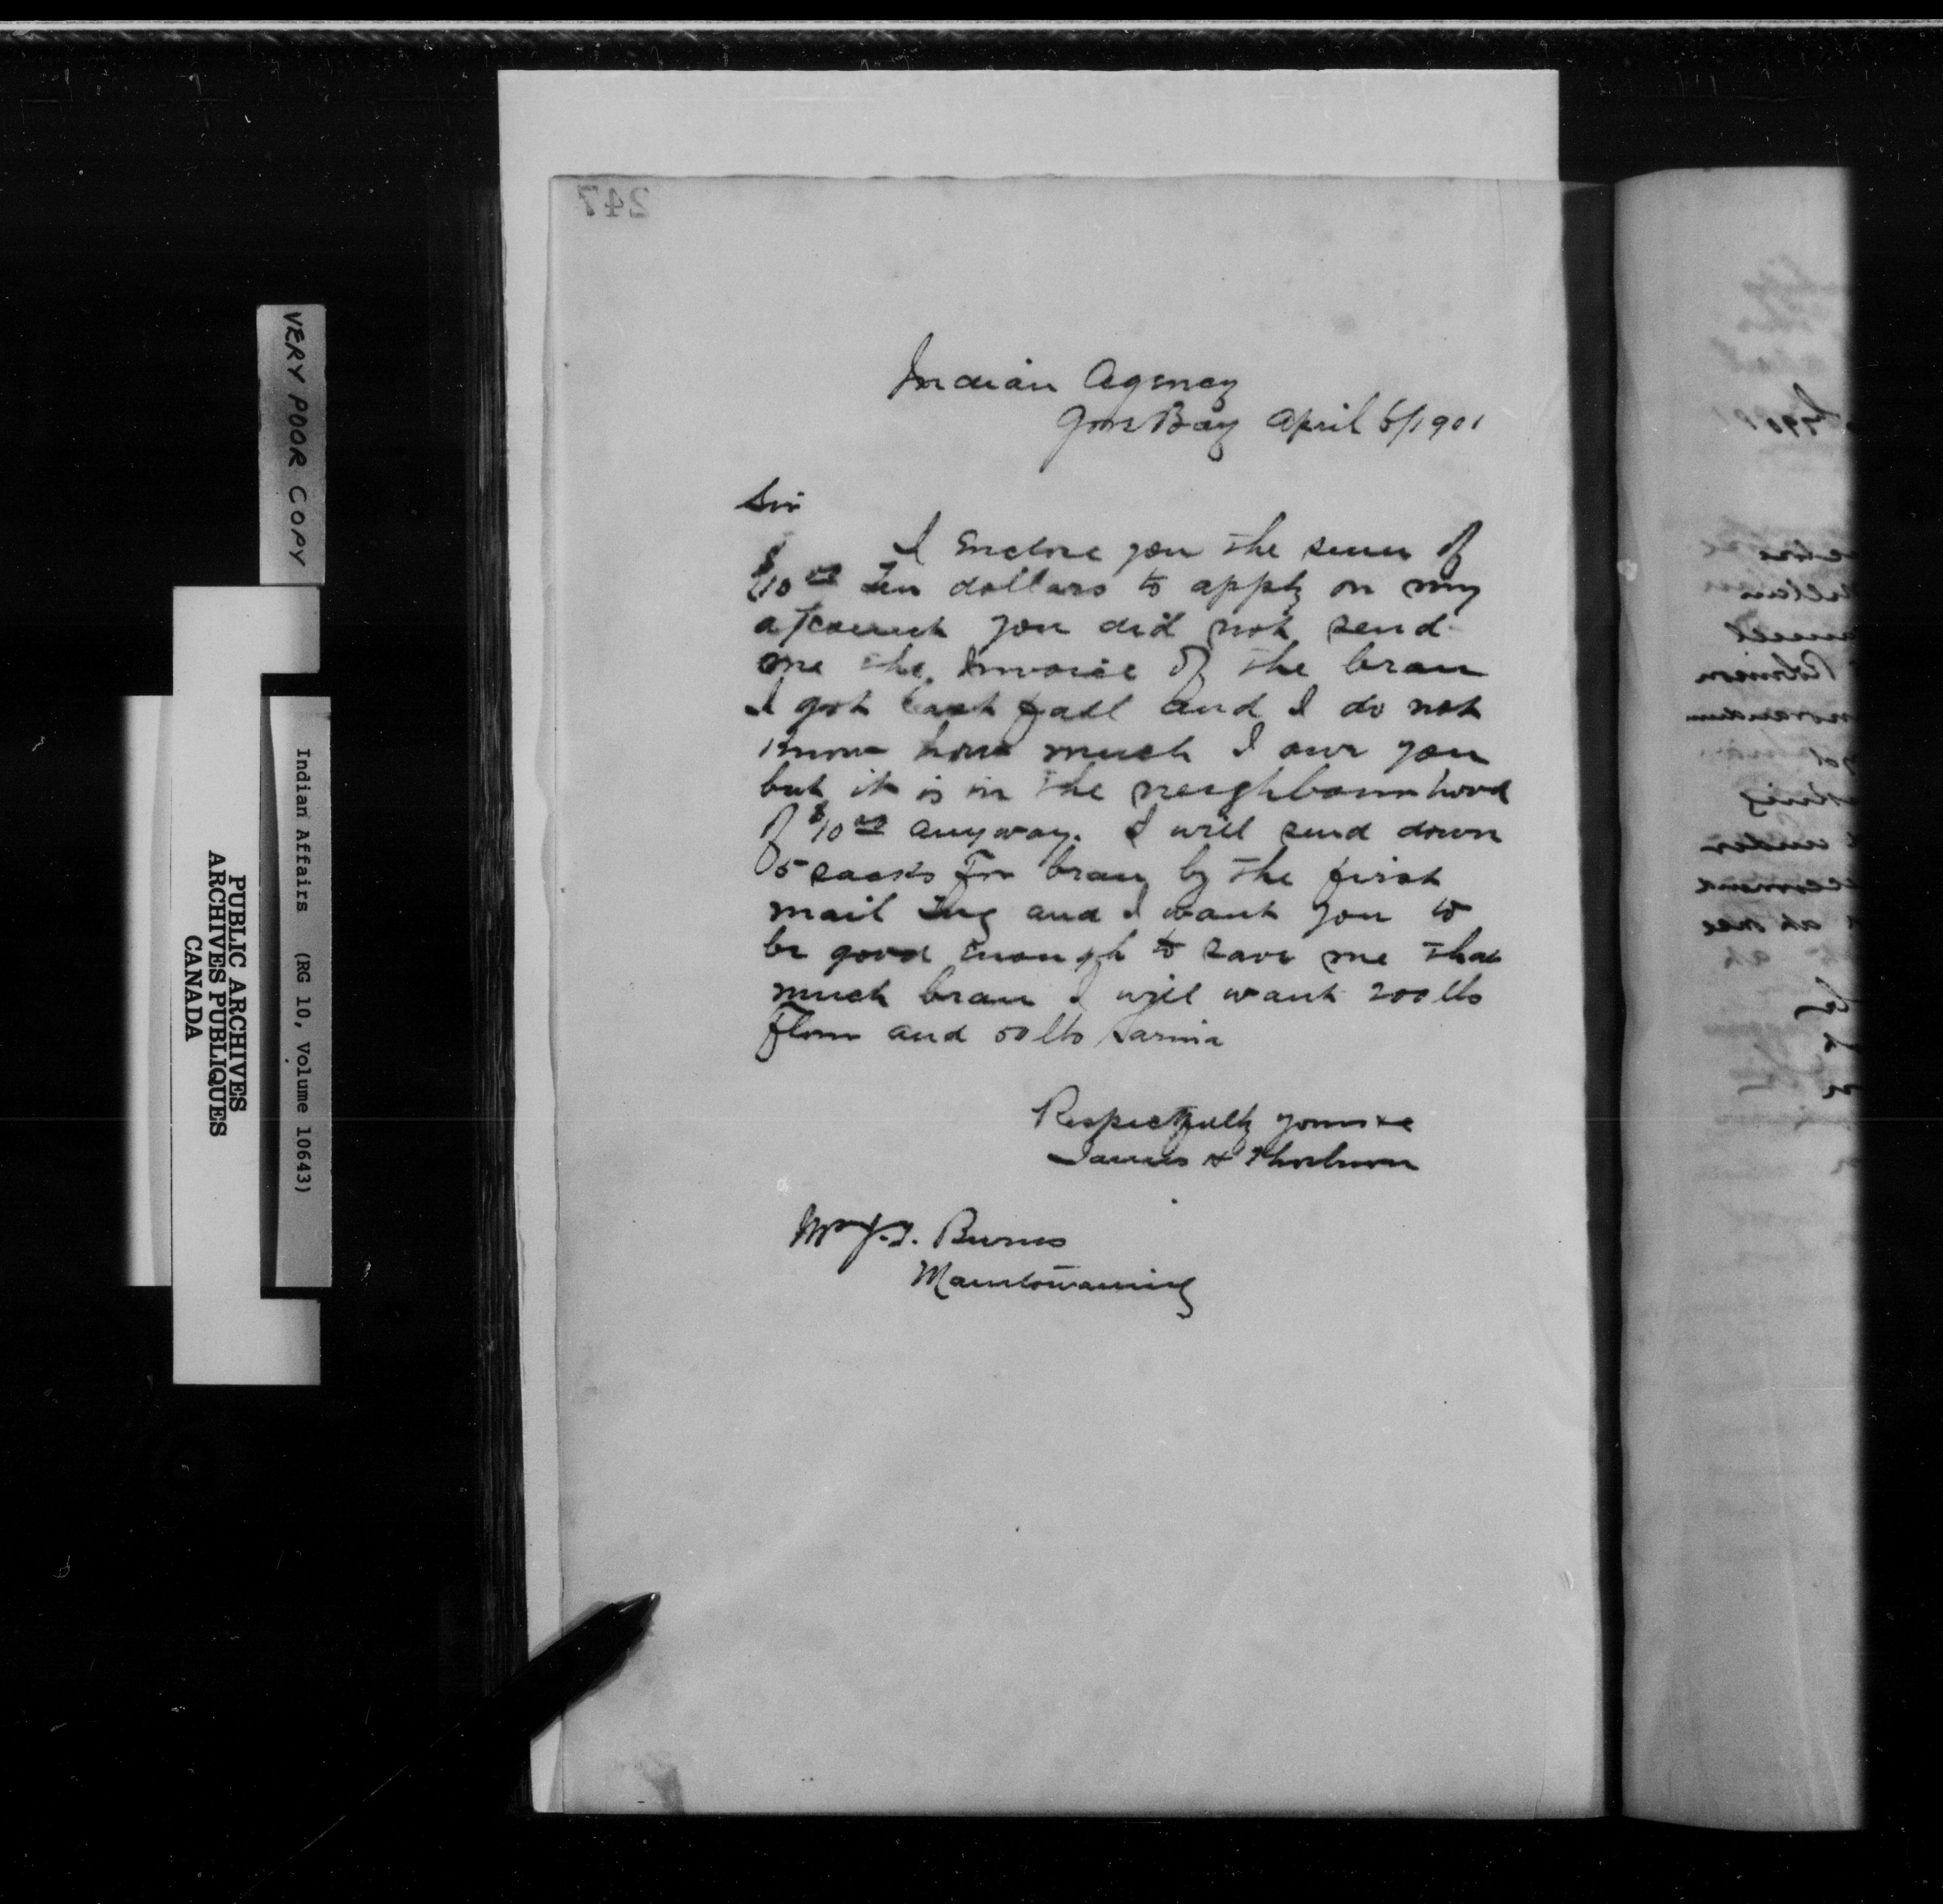 247
Indian Agency
Gore Bay April 5/1901
Sir
I Enclose you the sum of
$10 00 Ten dollars to apply on my
account you did not send
me the Invoice of the bran
I got last fall and I do not
know how much I owe you
but it is in the neighbourhood
of $10 00 anyway. I will send down
5 sacks for bran by the first
mail and I want you to
be good enough to save me that
much bran I will want 200 lbs
Flour and 50 lbs farina
Respectfully yours &c
James H Thorburn
Mr J. T. Burns
Manitowaning
VERY POOR COPY
Indian Affairs (RG 10, Volume 10643)
PUBLIC ARCHIVES
ARCHIVES PUBLIQUES
CANADA